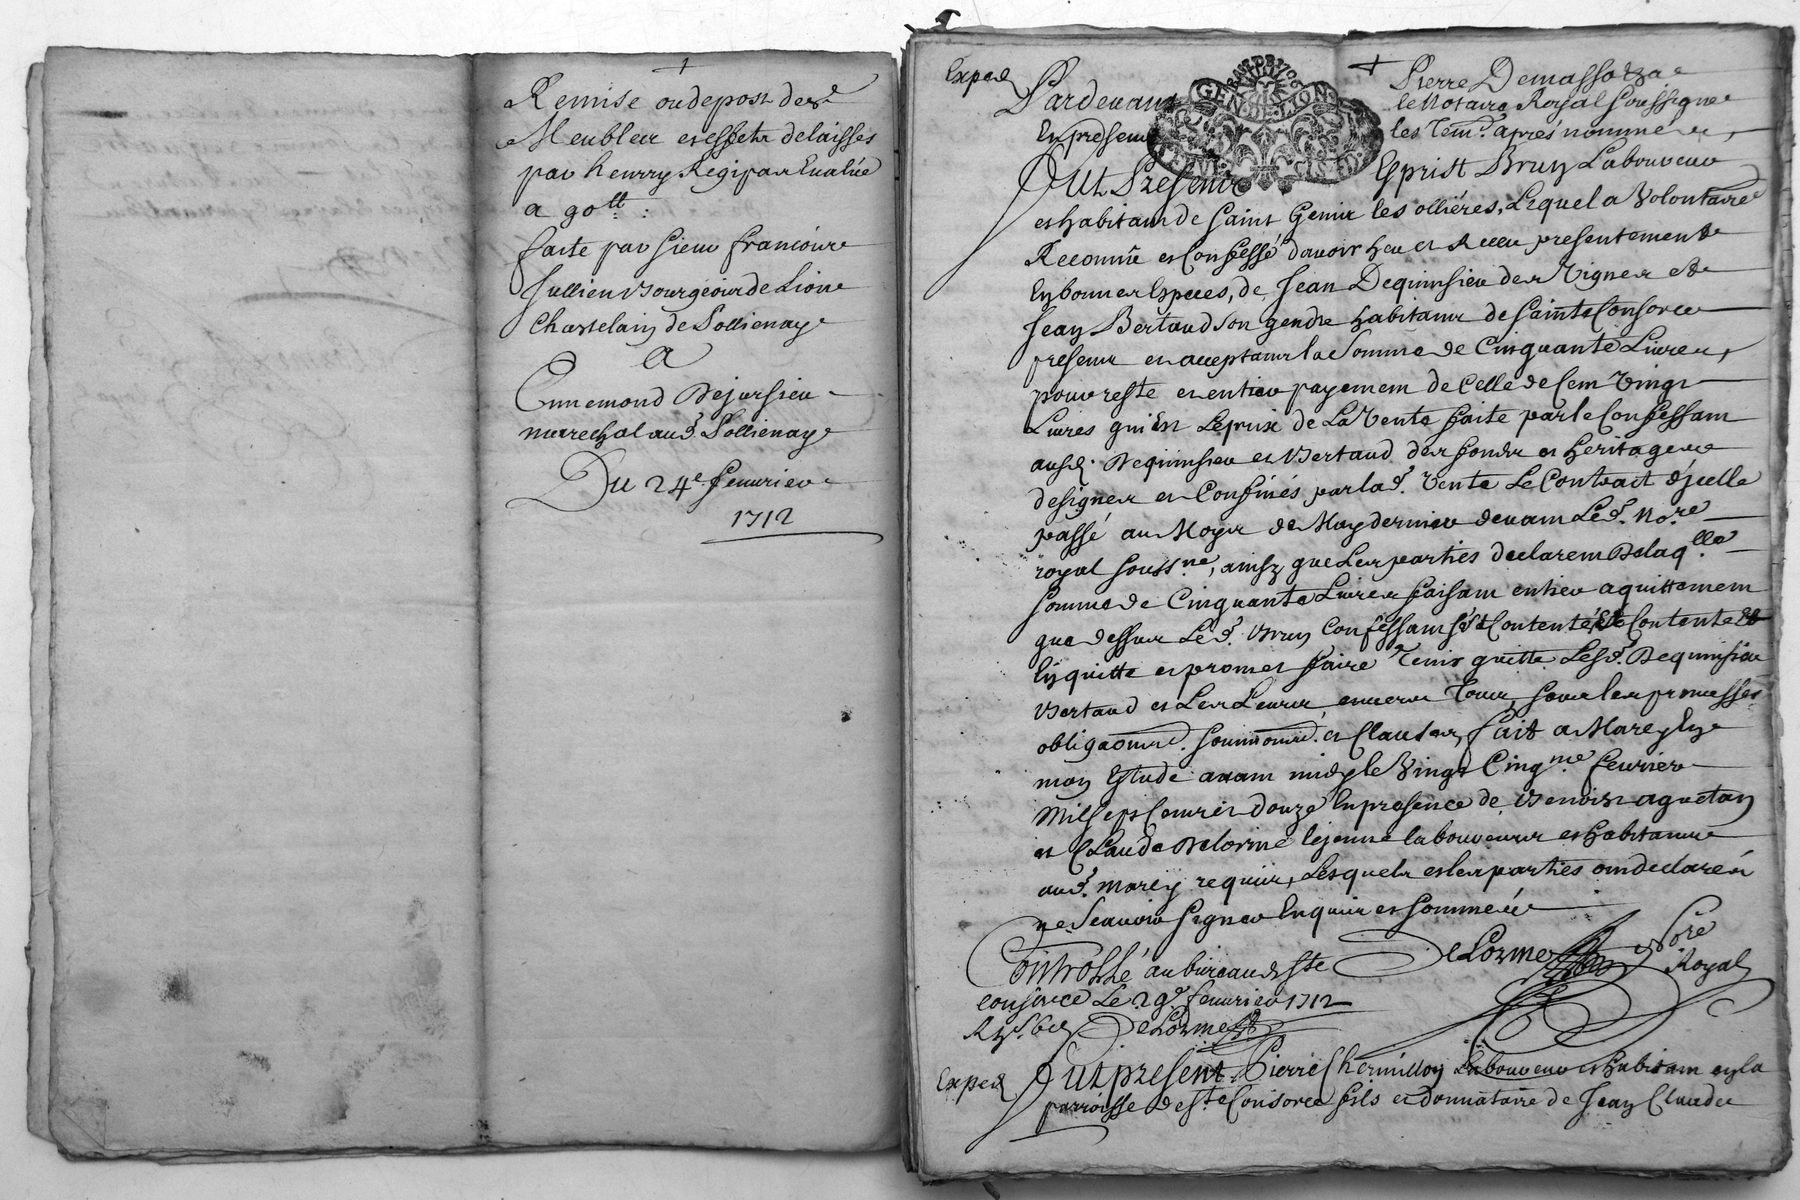 Remise ou depost des
Meubles et effets delaisses
par henrry Regipas Evalué
a 90tt :
faite par sieur francois
Jullien Bourgeois de Lion
Chastelain de Pollienay
A
Ennemond Dejussieu
marechal aud. Pollienay
Du 24e feuurier
1712
Exped
Pardeuant Pierre Demasso
le Notaire Royal soussigne
En presence les tem. apres nommés,
Fut Present Esprist Brun Laboureur
et habitant de Saint Genis les ollieres, Lequel a Volontaire
Reconnû et Confessé d'auoir heu et Receu presentement
En bonnes Especes, de Jean Dequinsieu des Vignes et de
Jean Bertaud son gendre habitans de Sainte Consorce
presens et acceptans la Somme de Cinquante Liures,
pour reste et entier payement de Celle de Cent Vingt
Liures qui Est Le prix de La Vente faite par le Confessant
ausd. Dequinsieu et Bertaud des fonds et heritages
designés et Confinés par lad. Vente Le Contrait d'jcelle
passé au Moys de May dernier deuant Led. No.re
royal souss.ne, ainsy que Les parties declarent De laq.lle
somme de Cinquante Liures faisant entier aquittement
que dessus Led. Brun Confessant s'est Contenté et Contente
En quitte et promet faire tenir quitte Lesd. Dequinsieu
Bertaud et Les Leurs, enuers tous, sous les promesses
obligaons. soumions. et Clauses, fait a Marcy En
mon Estude auant midy le Vingt Cinq.me feurier
Mil Sept Cents douze En presence de Benoist aguetan
et Claude Delorme le jeune laboureurs et habitans
aud. Marcy requis, Lesquels et les parties ont declaré
ne Scauoir signer Enquis et sommés
DeLorme No.re
Royal
Controllé au bureau de Ste
consorce Le 29e feuurier 1712
DeLorme
Exped
Fut present Pierre Chermillon Laboureur et habitant en la
parroisse de S.te Consorce fils et donnataire de Jean Claude